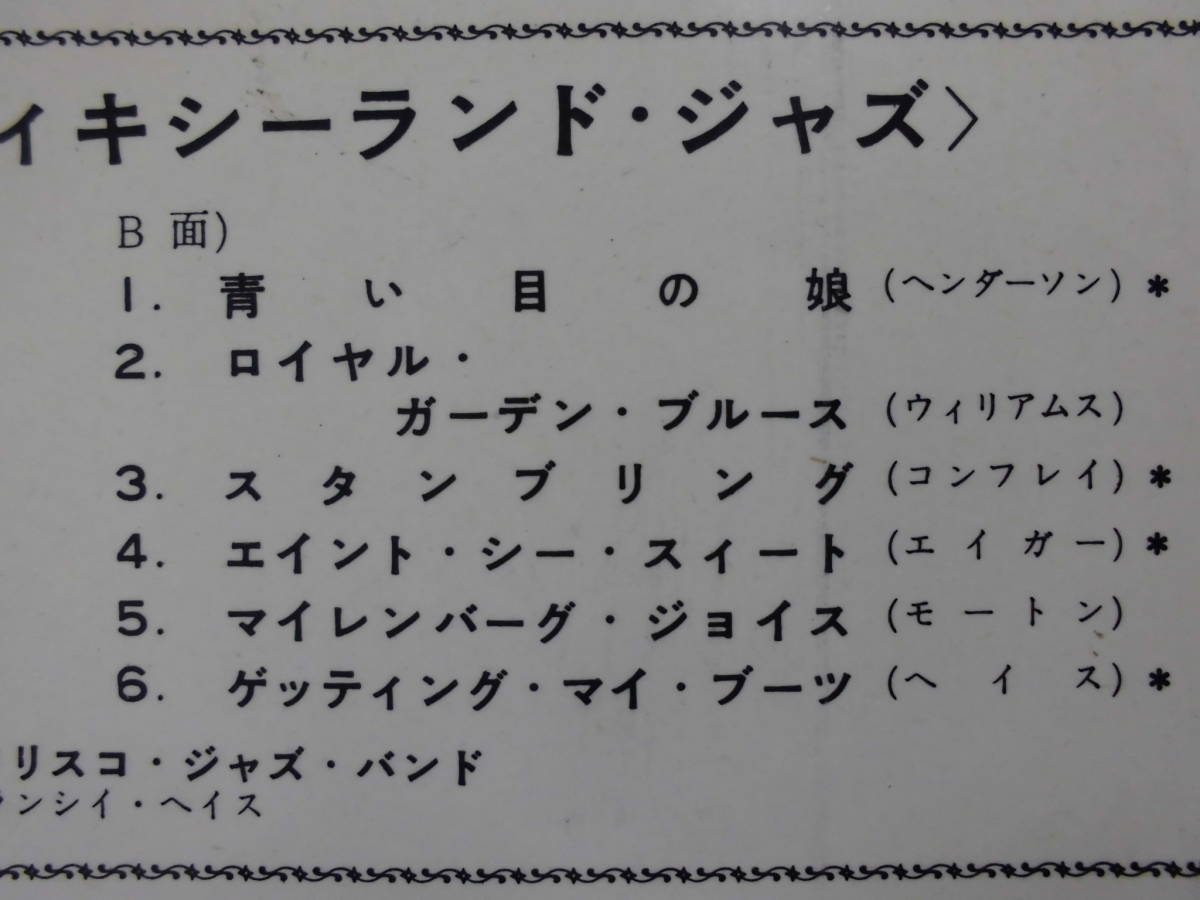 ィキシーランド・ジャズ〉
B 面)
1. 青い目の娘 (ヘンダーソン) *
2. ロイヤル・
ガーデン・ブルース (ウィリアムス)
3. スタンブリング (コンフレイ) *
4. エイント・シー・スィート (エイガー) *
5. マイレンバーグ・ジョイス (モートン)
6. ゲッティング・マイ・ブーツ (ヘイス) *
リスコ・ジャズ・バンド
ランシイ・ヘイス